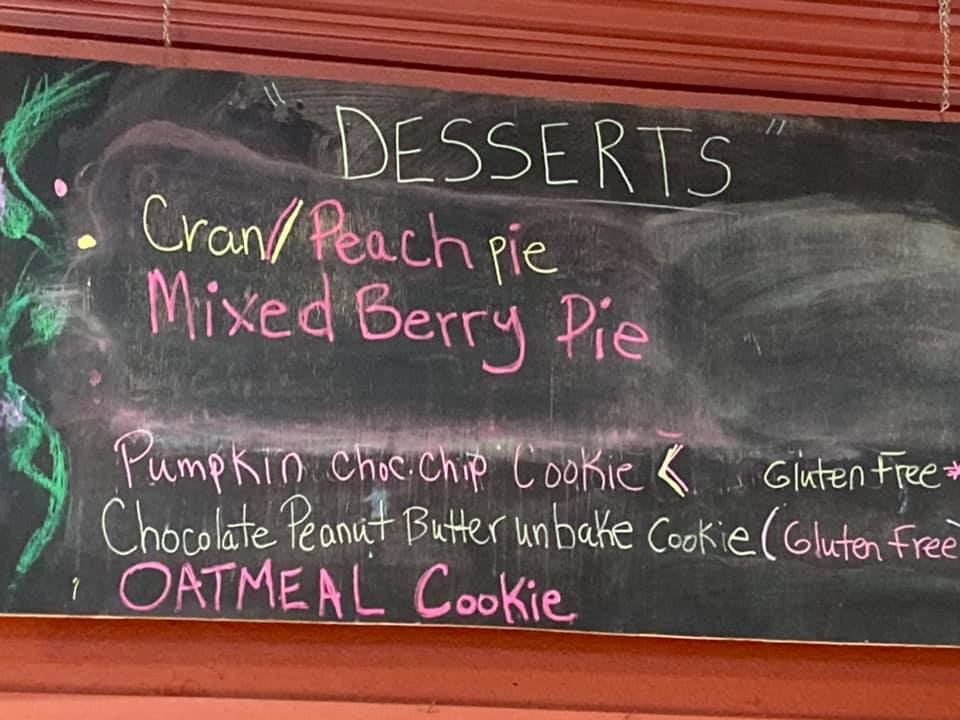 "DESSERTS"
Cran/Peach pie
Mixed Berry Pie
Pumpkin choc.chip Cookie < Gluten Free*
Chocolate Peanut Butter unbake Cookie (Gluten Free)
OATMEAL Cookie